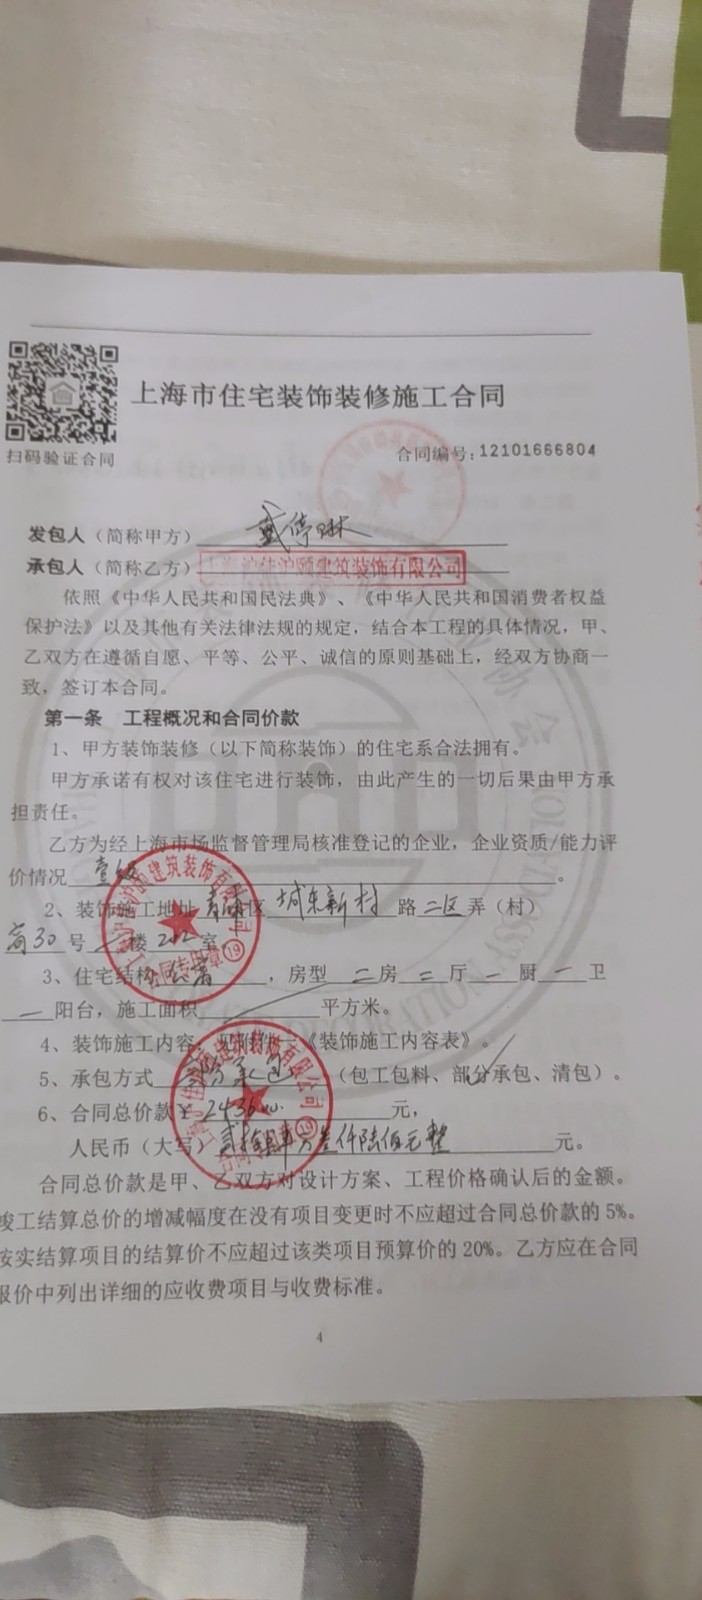 上海市住宅装饰装修施工合同
扫码验证合同
合同编号:12101666804
发包人（简称甲方）戴停琳
承包人（简称乙方）上海沪佳沪颐建筑装饰有限公司
依照《中华人民共和国民法典》、《中华人民共和国消费者权益
保护法》以及其他有关法律法规的规定，结合本工程的具体情况，甲、
乙双方在遵循自愿、平等、公平、诚信的原则基础上，经双方协商一
致，签订本合同。
第一条 工程概况和合同价款
1、甲方装饰装修（以下简称装饰）的住宅系合法拥有。
甲方承诺有权对该住宅进行装饰，由此产生的一切后果由甲方承
担责任。
乙方为经上海市场监督管理局核准登记的企业，企业资质/能力评
价情况 壹级 。
2、装饰施工地址 青浦区 城东新村 路 二区 弄（村）
30 号 楼 202 室
3、住宅结构 公寓 ，房型 二 房 二 厅 一 厨 一 卫
一 阳台，施工面积 平方米。
4、装饰施工内容：见附件一《装饰施工内容表》。
5、承包方式 部分承包 （包工包料、部分承包、清包）。
6、合同总价款¥ 元，
人民币（大写） 万叁仟陆佰元整 元。
合同总价款是甲、乙双方对设计方案、工程价格确认后的金额。
竣工结算总价的增减幅度在没有项目变更时不应超过合同总价款的 5%。
按实结算项目的结算价不应超过该类项目预算价的 20%。乙方应在合同
报价中列出详细的应收费项目与收费标准。
4